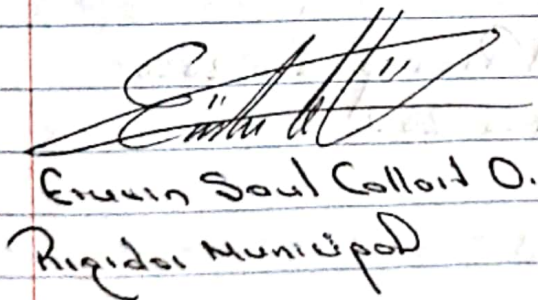 Erwin Saul Collart O.
Regidor Municipal